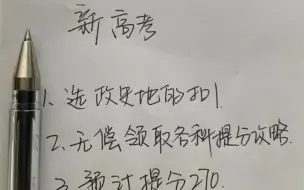 新高考
1.选政史地的扣1.
2.无偿领取各科提分攻略.
3.预计提分270.